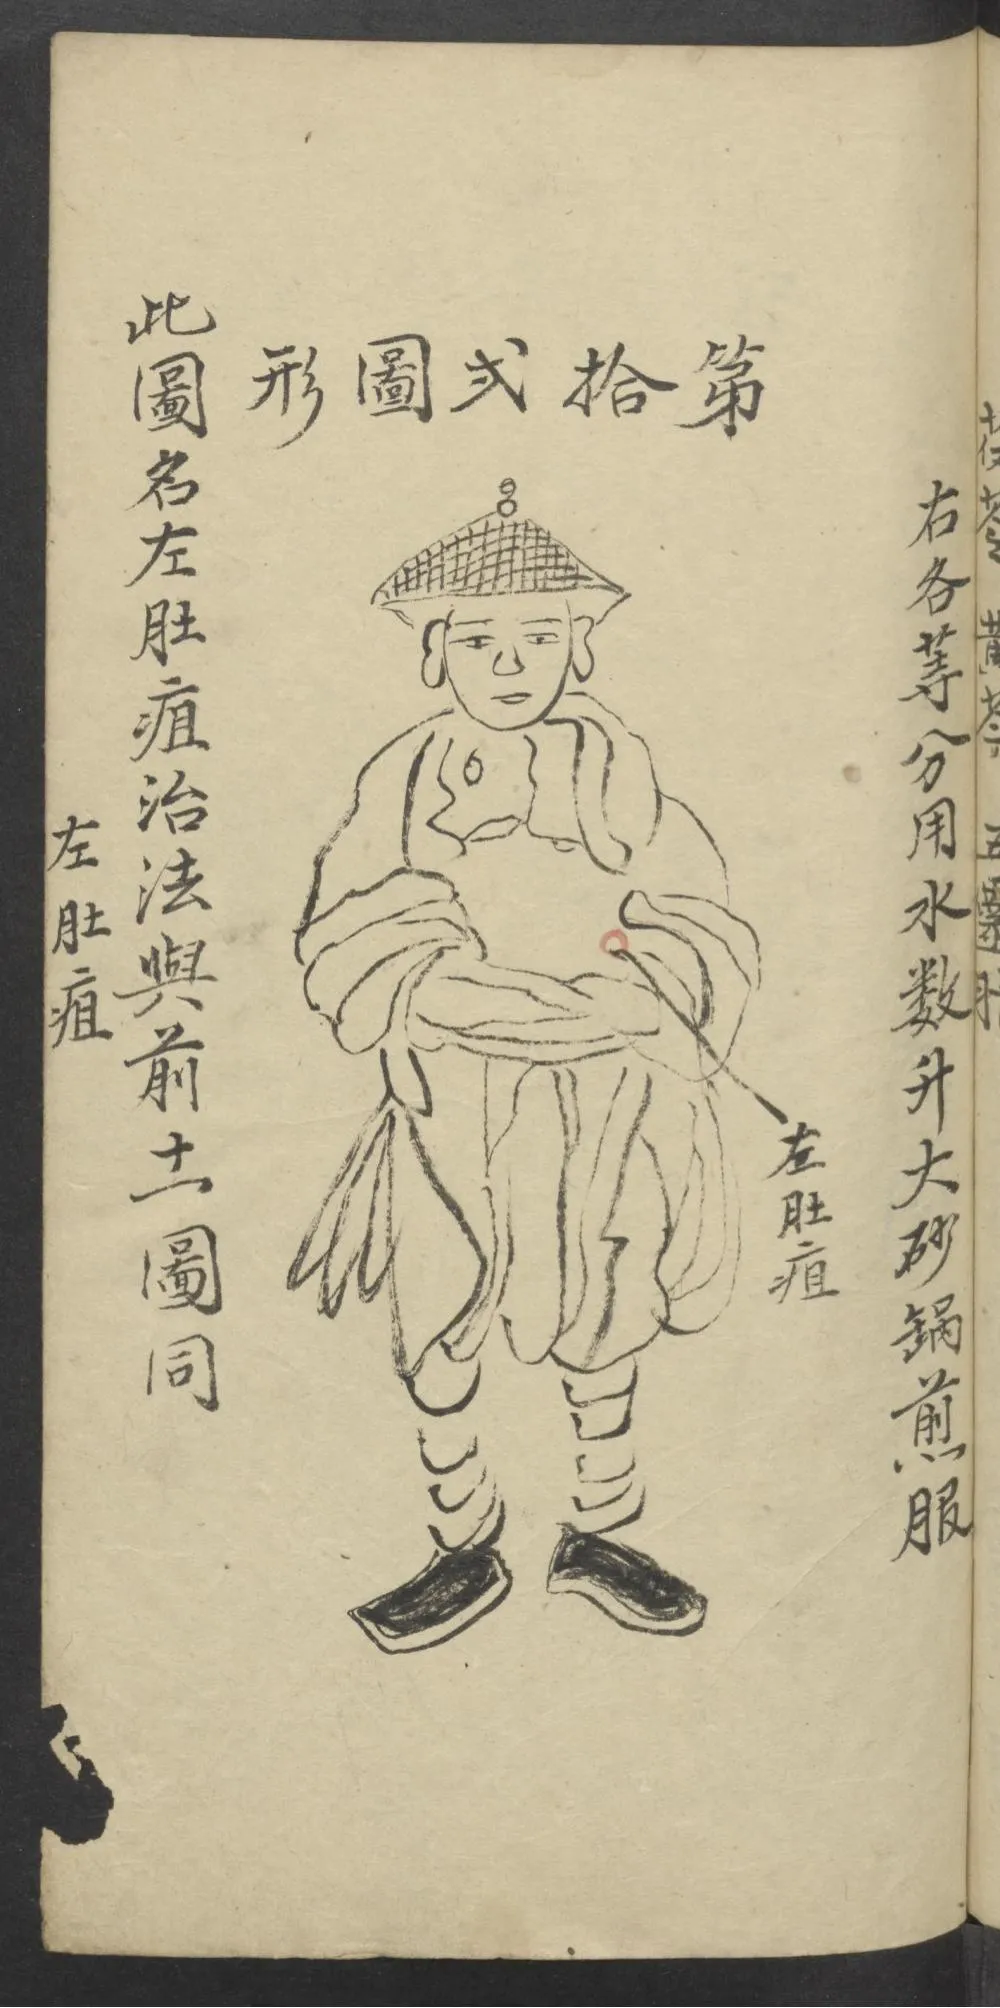 右各等分用水数升大砂鍋煎服
第拾弍圖形
左肚疽
此圖名左肚疽治法與前十一圖同
左肚疽